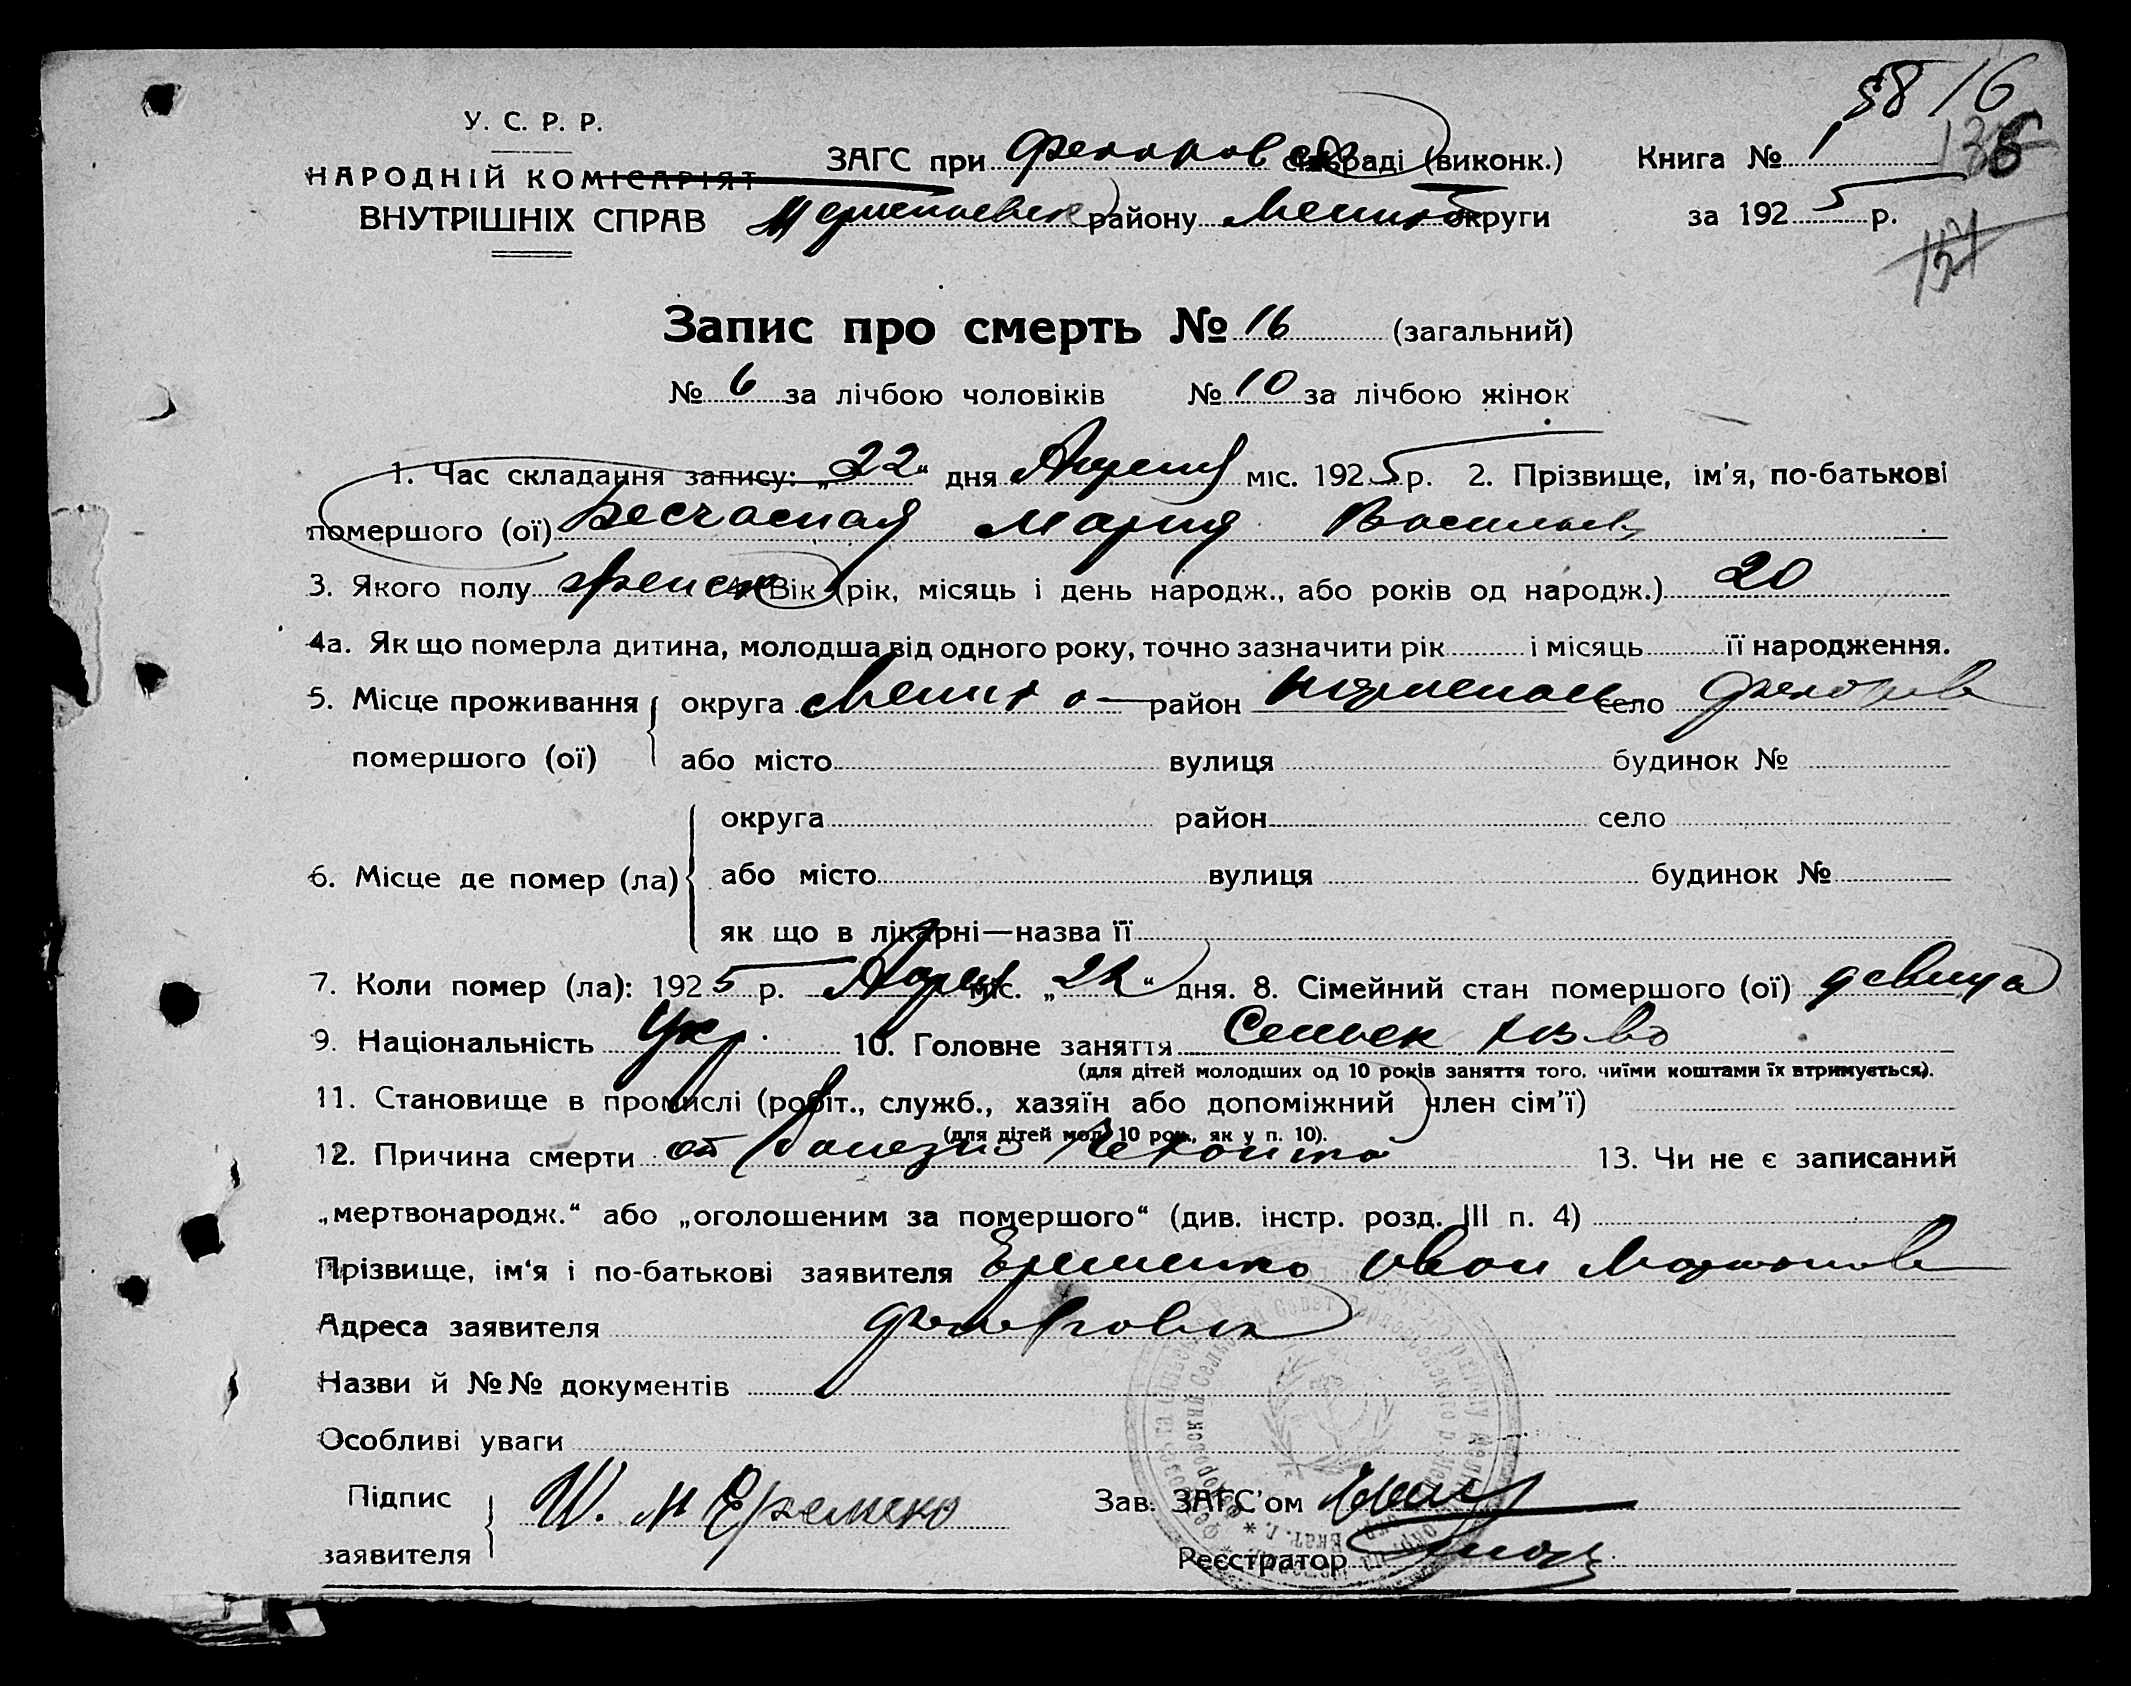 58 16
У. С. Р. Р.
ЗАГС при Федоровск сільраді (виконк.) Книга № 1
НАРОДНІЙ КОМІСАРІЯТ
ВНУТРІШНІХ СПРАВ району Мелит округи за 1925 р.
Запис про смерть № 16 (загальний)
№ 6 за лічбою чоловіків № 10 за лічбою жінок
1. Час складання запису: „22“ дня Апреля міс. 1925 р. 2. Прізвище, ім'я, по-батькові
помершого (ої) Бесчасная Мария Васильев
3. Якого полу женск 4. Вік (рік, місяць і день народж., або років од народж.) 20
4а. Як що померла дитина, молодша від одного року, точно зазначити рік і місяць її народження.
5. Місце проживання округа Мелито район село Федоровк
помершого (ої) або місто вулиця будинок №
округа район село
6. Місце де помер (ла) або місто вулиця будинок №
як що в лікарні—назва її
7. Коли помер (ла): 1925 р. Апрел міс. „22“ дня. 8. Сімейний стан помершого (ої) девица
9. Національність Укр. 10. Головне заняття Сельск хоз-во
(для дітей молодших од 10 років заняття того, чиїми коштами їх втримується).
11. Становище в промислі (робіт., служб., хазяїн або допоміжний член сім'ї)
(для дітей мол. 10 рок., як у п. 10).
12. Причина смерти от болезни 13. Чи не є записаний
„мертвонародж.“ або „оголошеним за помершого“ (див. інстр. розд. III п. 4)
Прізвище, ім'я і по-батькові заявителя Еременко Иван
Адреса заявителя Федоровка
Назви й №№ документів
Особливі уваги
Підпис И. М Еременко Зав. ЗАГС'ом
заявителя Реєстратор